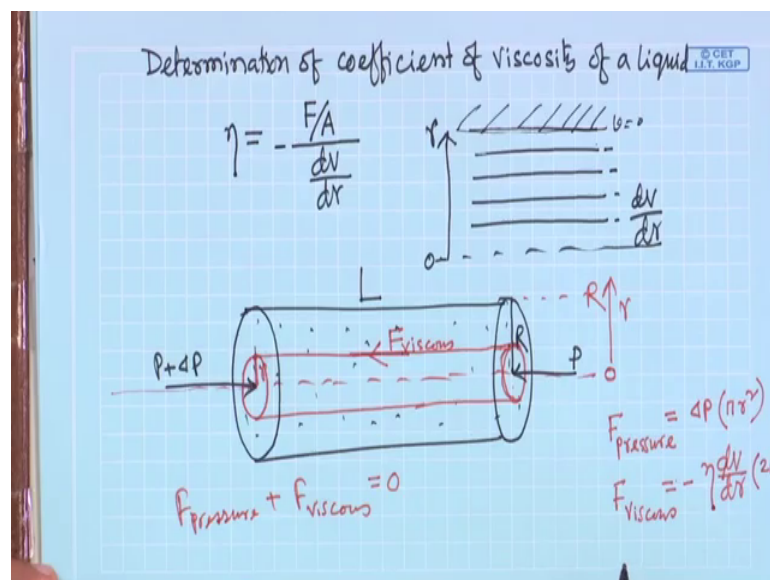 Determination of coefficient of viscosity of a liquid
© CET
I.I.T. KGP
η = - F/A / dv/dr
r
v=0
dv/dr
0
L
R
r
F viscous
R
P+ΔP
r
P
0
F pressure = ΔP (πr²)
F viscous = - η dv/dr (2
F pressure + F viscous = 0